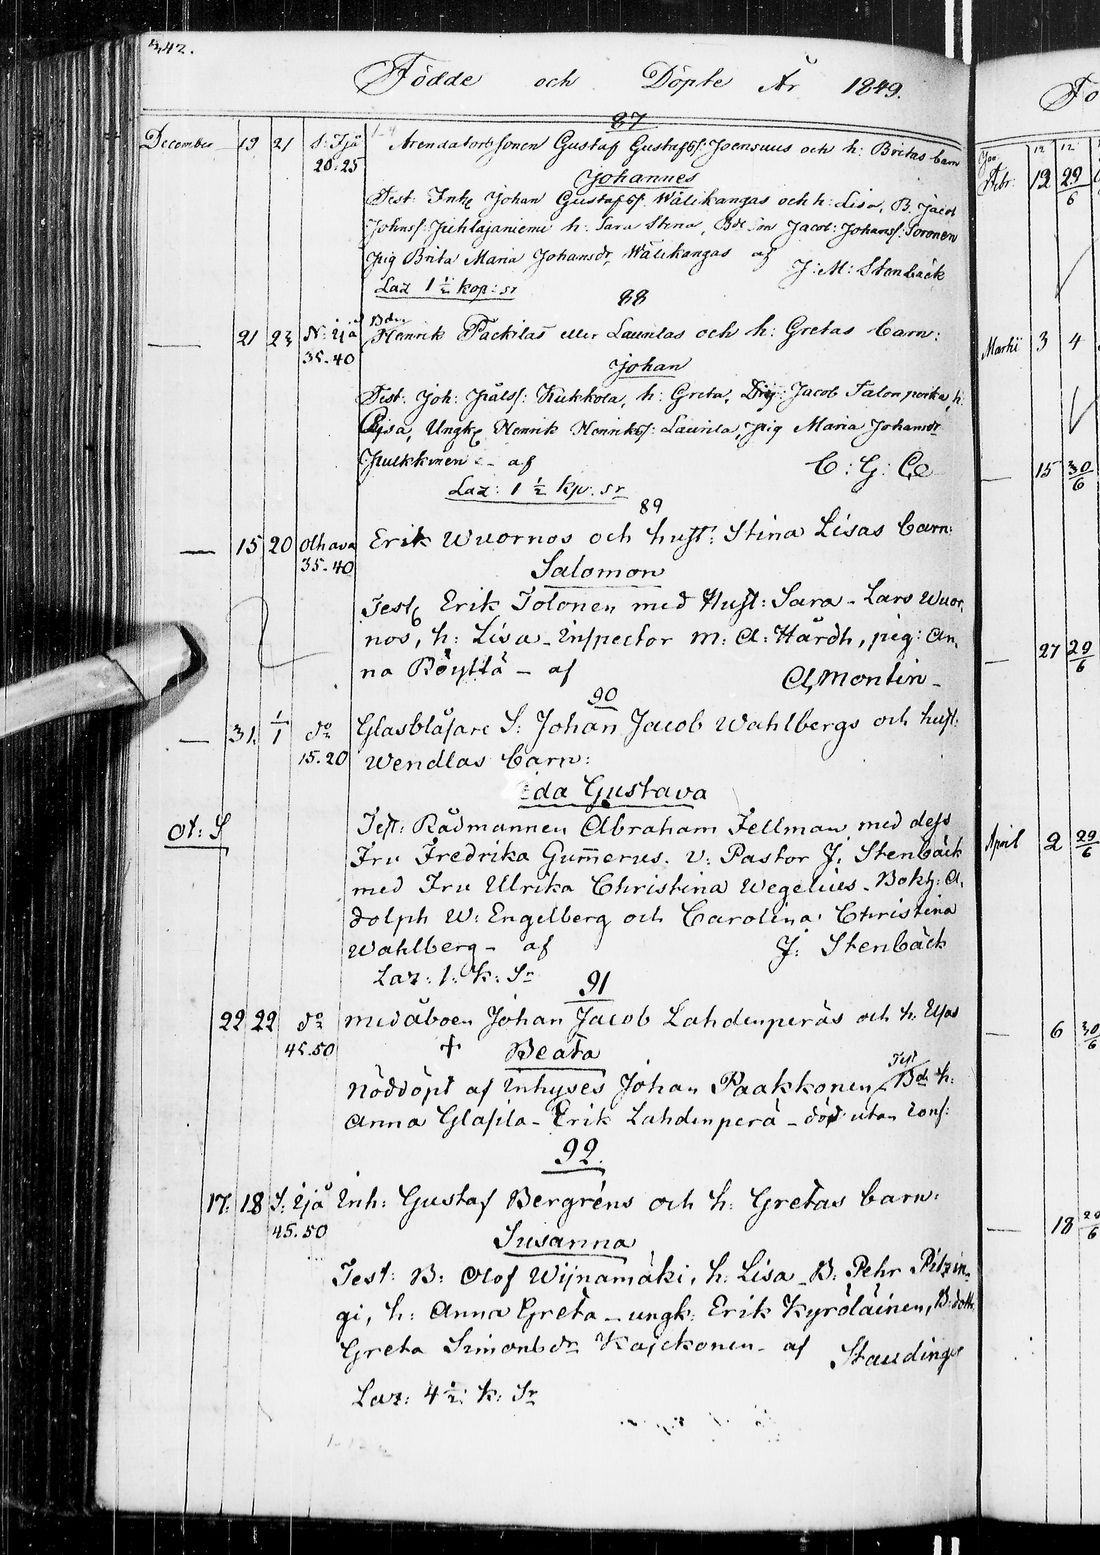 342.
Födde och Döpte År 1849.
87
December 19 21 S: Ijå 20-25 Arendators sonen Gustaf Gustafss: Joensuus och h: Britas barn
Johannes
Test: Inh: Johan Gustafss: Wälikangas och h: Lisa, B. Jacob
Johnsf: Juhlajaniemi h: Sara Stina, Bde son Jacob: Johansf: Soronen
pig Brita Maria Johansdr Wälikangas af J: M: Stenbäck
Laz 1 1/2 kop: sr
88
— 21 23 N: Ijå 35-40 Bden Henrik Packilas eller Laurilas och h: Gretas barn:
Johan
Test: Joh: Pålsf: Kukkola, h: Greta, Jacob Talonpoika, h:
Cajsa, Ungk: Henrik Henrikss: Laurila, pig Maria Johansdr
Pulkkinen - af C: G:
Laz: 1 1/2 kp. sr
89
— 15 20 Olhava 35-40 Erik Wuornos och hust: Stina Lisas barn:
Salomon
Test: Erik Tolonen med Hust: Sara - Lars Wuor-
nos, h: Lisa - Inspector M: A: Hårdh, pig: An-
na Röyttä - af A, Montin -
90
— 31. 1/1 do 15-20 Glasblåsare S: Johan Jacob Wahlbergs och hust:
Wendlas barn:
Ida Gustava
Ot: S
Test: Rådmannen Abraham Fellman med dess
Fru Fredrika Gum̄erus. V: Pastor J: Stenbäck
med Fru Ulrika Christina Wegelius - Bokh: A-
dolph W: Engelberg och Carolina Christina
Wahlberg - af J: Stenbäck
Laz: 1: k: Sr
91
22 22 do 45.50 Midåboen Johan Jacob Lahdenperäs och h: Elsas
+ Beata
Nöddöpt af Inhyses Johan Paakkonen, Test Bde h:
Anna Glasila - Erik Lahdenperä - död utan conf:
92.
17: 18 S: Ijå 45.50 Inh: Gustaf Bergréns och h: Gretas barn:
Susanna
Test: B: Olof Wijnamäki, h: Lisa - B: Pehr Pitzin-
gi, h: Anna Greta - ungk: Erik Kyröläinen, B: dott:
Greta Simonsdr Kajckonen - af Staudinger
Laz: 4 1/2: k: Sr
Fö
Febr: 12 29/6
Martii 3 4
— 15 30/6
— 27 29/6
April 2 29/6
— 6 30/6
— 18 29/6